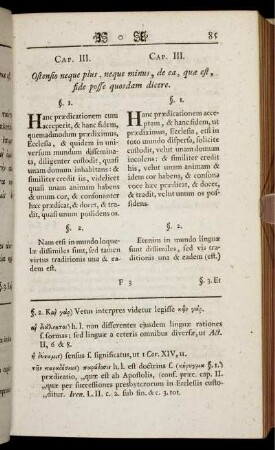 85
CAP. III.
CAP. III.
Ostensio neque plus, neque minus, de ea, quæ est,
fide posse quosdam dicere.
§. 1.
Hanc prædicationem cum
acceperit, & hanc fidem,
quemadmodum prædiximus,
Ecclesia, & quidem in uni-
versum mundum dissemina-
ta, diligenter custodit, quasi
unam domum inhabitans, &
similiter credit iis, videlicet
quasi unam animam habens
& unum cor, & consonanter
hæc prædicat, & docet, & tra-
dit, quasi unum possidens os.
§. 2.
Nam etsi in mundo loque-
læ dissimiles sunt, sed tamen
virtus traditionis una & ea-
dem est.
§. 1.
Hanc prædicationem acce-
ptam, & hanc fidem, ut
prædiximus, Ecclesia, est in
toto mundo dispersa, solicite
custodit, velut unam domum
incolens: & similiter credit
hisce, velut unam animam &
idem cor habens, & consona
voce hæc prædicat, & docet,
& tradit, velut uno prædita
ore.
§. 2.
Etenim in mundo linguæ
sunt dissimiles, sed vis tradi-
tionis una & eadem (est.)
F 3
§. 3. Et
§. 2. Καὶ γὰρ) Vetus interpres videtur legisse κἢν γάρ.
αἱ διάλεκτοι) h. l. non differentes ejusdem linguæ rationes
s. formas; sed linguæ a ceteris omnibus diversæ, ut Act.
II, 6 & 8.
ἡ δύναμις) sensus s. significatus, ut 1 Cor. XIV, 11.
τῆς παραδόσεως) παράδοσις h. l. est doctrina s. (κήρυγμα §. 1.)
prædicatio, „quæ est ab Apostolis, (conf. præc. cap. II.
„quæ per successiones presbyterorum in Ecclesiis custo-
„ditur. Iren. L. II. c. 2. sub fin. & c. 3. tot.